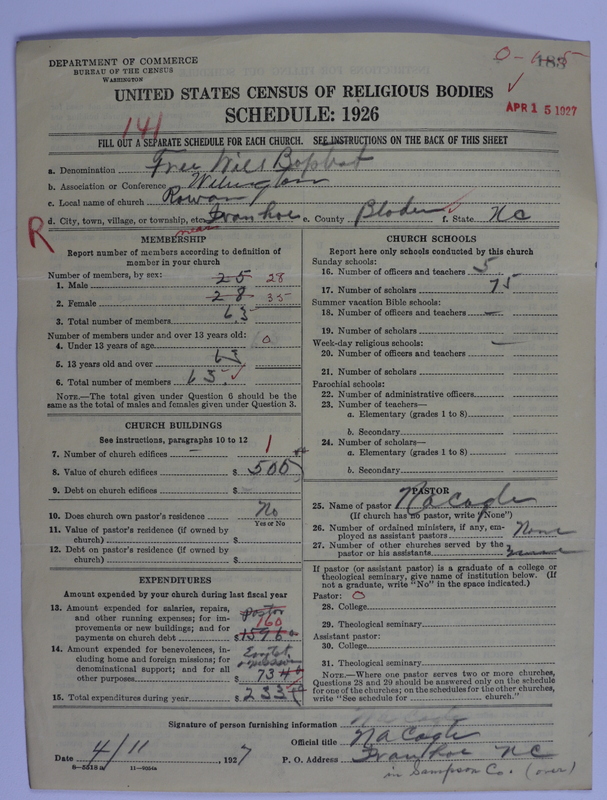 DEPARTMENT OF COMMERCE
BUREAU OF THE CENSUS
WASHINGTON
183
UNITED STATES CENSUS OF RELIGIOUS BODIES
APR 15 1927
SCHEDULE: 1926
141
FILL OUT A SEPARATE SCHEDULE FOR EACH CHURCH. SEE INSTRUCTIONS ON THE BACK OF THIS SHEET
a. Denomination Free Will Baptist
b. Association or Conference Wilmington
c. Local name of church Rowan
d. City, town, village, or township, etc. Ivanhoe e. County Bladen f. State NC
near
R
MEMBERSHIP
Report number of members according to definition of
member in your church
Number of members, by sex:
1. Male 25 28
2. Female 28 35
3. Total number of members 63
Number of members under and over 13 years old:
4. Under 13 years of age 0
5. 13 years old and over 63
6. Total number of members 63
NOTE.—The total given under Question 6 should be the
same as the total of males and females given under Question 3.
CHURCH BUILDINGS
See instructions, paragraphs 10 to 12
7. Number of church edifices 1
8. Value of church edifices $ 500
9. Debt on church edifices $
10. Does church own pastor's residence No
Yes or No
11. Value of pastor's residence (if owned by
church) $
12. Debt on pastor's residence (if owned by
church) $
EXPENDITURES
Amount expended by your church during last fiscal year
13. Amount expended for salaries, repairs,
and other running expenses; for im-
provements or new buildings; and for
payments on church debt Pastor 160 $
14. Amount expended for benevolences, in-
cluding home and foreign missions; for
denominational support; and for all
other purposes $ 73
15. Total expenditures during year $ 233
CHURCH SCHOOLS
Report here only schools conducted by this church
Sunday schools:
16. Number of officers and teachers 5
17. Number of scholars 75
Summer vacation Bible schools:
18. Number of officers and teachers —
19. Number of scholars
Week-day religious schools: —
20. Number of officers and teachers
21. Number of scholars
Parochial schools:
22. Number of administrative officers
23. Number of teachers—
a. Elementary (grades 1 to 8)
b. Secondary
24. Number of scholars—
a. Elementary (grades 1 to 8)
b. Secondary
PASTOR
25. Name of pastor
(If church has no pastor, write "None")
26. Number of ordained ministers, if any, em-
ployed as assistant pastors None
27. Number of other churches served by the
pastor or his assistants
If pastor (or assistant pastor) is a graduate of a college or
theological seminary, give name of institution below. (If
not a graduate, write "No" in the space indicated.)
Pastor: O
28. College
29. Theological seminary
Assistant pastor:
30. College
31. Theological seminary
NOTE.—Where one pastor serves two or more churches,
Questions 28 and 29 should be answered only on the schedule
for one of the churches; on the schedules for the other churches,
write "See schedule for church."
Signature of person furnishing information
Official title
Date 4/11, 1927 P. O. Address Ivanhoe NC
8-5518a 11-9054a
in Sampson Co. (over)